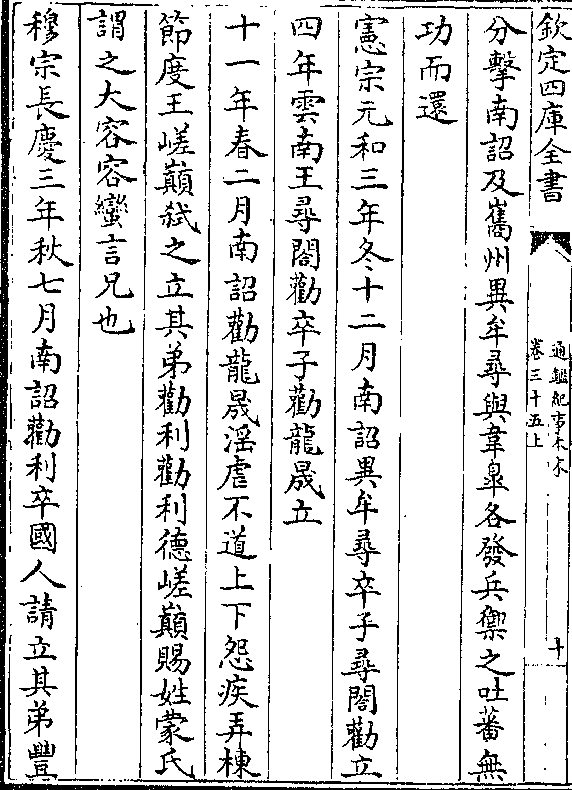 欽定四庫全書
通鑑紀事本末
卷三十五上
十
分擊南詔及巂州異牟尋與韋臯各發兵禦之吐蕃無
功而還
憲宗元和三年冬十二月南詔異牟尋卒子尋閤勸立
四年雲南王尋閤勸卒子勸龍晟立
十一年春二月南詔勸龍晟滛虐不道上下怨疾弄棟
節度王嵯巔弑之立其弟勸利勸利德嵯巔賜姓蒙氏
謂之大容容蠻言兄也
穆宗長慶三年秋七月南詔勸利卒國人請立其弟豐